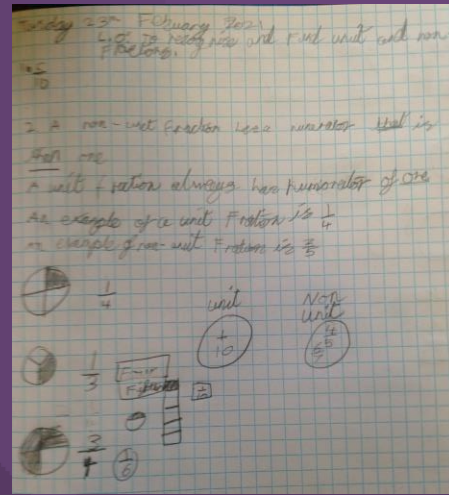 Tuesday 23rd February 2021
L.O: to recognise and find unit and non
fractions.
5
10
2. A non-unit fraction has a numerator that is
one
A unit fration always has numorator of one
An example of a unit Fration is 1/4
example of non-unit Fration is
1/4
unit
Non
unit
1/10
1/3
3/4
1/6